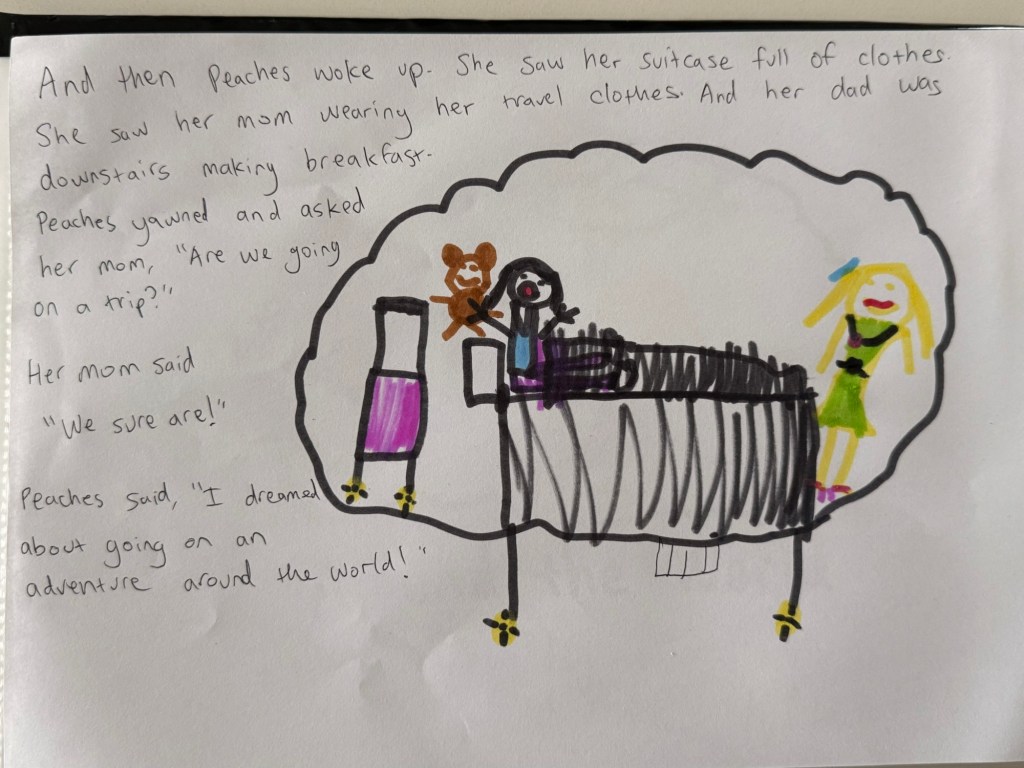 And then Peaches woke up. She saw her suitcase full of clothes.
She saw her mom wearing her travel clothes. And her dad was
downstairs making breakfast.
Peaches yawned and asked
her mom, "Are we going
on a trip?"
Her mom said
"We sure are!"
Peaches said, "I dreamed
about going on an
adventure around the world!"